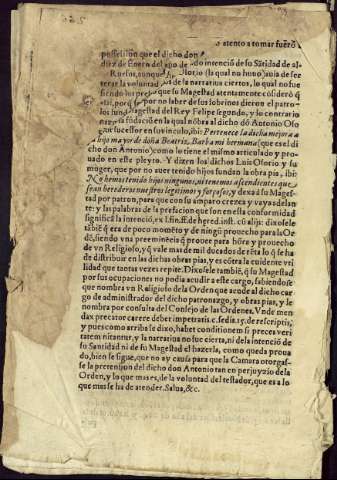 atento a tomar fuerõ
possession que el dicho don
diez de Enero del año de do intenció de su Sãtidad de al-
Ruescas, aunque Osorio (la qual no huuo) auia de ser
terar la voluntad de la narratiua ciertos, lo qual no fue
siendo los que su Magestad atento cõsideró q̃
porq̃ por no saber de sus sobrinos dieron el patro-
Magestad del Rey Felipe segundo, y lo contrario
fundacion en la qual nõbra al dicho dõ Antonio Oso
successor en su vinculo, ibi: Pertenece la dicha mejora a
hijo mayor de doña Beatriz, Barba mi hermana, (que es el di-
cho don Antonio) como lo tiene el mismo articulado y pro-
uado en este pleyto. Y dizen los dichos Luis Osorio y su
muger, que por no auer tenido hijos fundan la obra pia, ibi:
No hemos tenido hijos ningunos, ni tenemos ascendientes que
sean herederos nuestros legitimos y forçosos, y dexa á su Mages-
tad por patron, para que con su amparo crezca y vaya adelan
te: y las palabras de la prefacion que son en esta conformidad
significã la intenció, ex l. fin. ff. de hered. inst. cũ alijs: dixosele
tãbiẽ q̃ era de poco momẽto y de ningũ prouecho para la Or-
dẽ, siendo vna preeminẽcia q̃ procee para hõra y prouecho
de vn Religioso, y q̃ vale mas de mil ducados de rẽta lo q̃ se ha
de distribuir en las dichas obras pias, y escõtra la euidente vti
lidad que tantas vezes repite: Dixosele tambiẽ, q̃ su Magestad
por sus ocupaciones no podia acudir a este cargo, sabiendo se
que nombra vn Religioso de la Orden que acude al dicho car
go de administrador del dicho patronazgo, y obras pias, y le
nombra por consulta del Consejo de las Ordenes. Vnde men
dax precator carere debet impetratis, c. sedis, 15. de rescriptis,
y pues como arriba se dixo, habet conditionem si preces veri
tatem nitantur, y la narratiua no fue cierta, ni de la intenció de
su Santidad ni de su Magestad el hazerla, como queda proua
do, bien se sigue, que no ay causa para que la Camara otorgas-
se la pretension del dicho don Antonio tan en perjuyzio de la
Orden, y lo que mas es, de la voluntad del testador, que es a lo
que mas se ha de atender. Salua, &c.